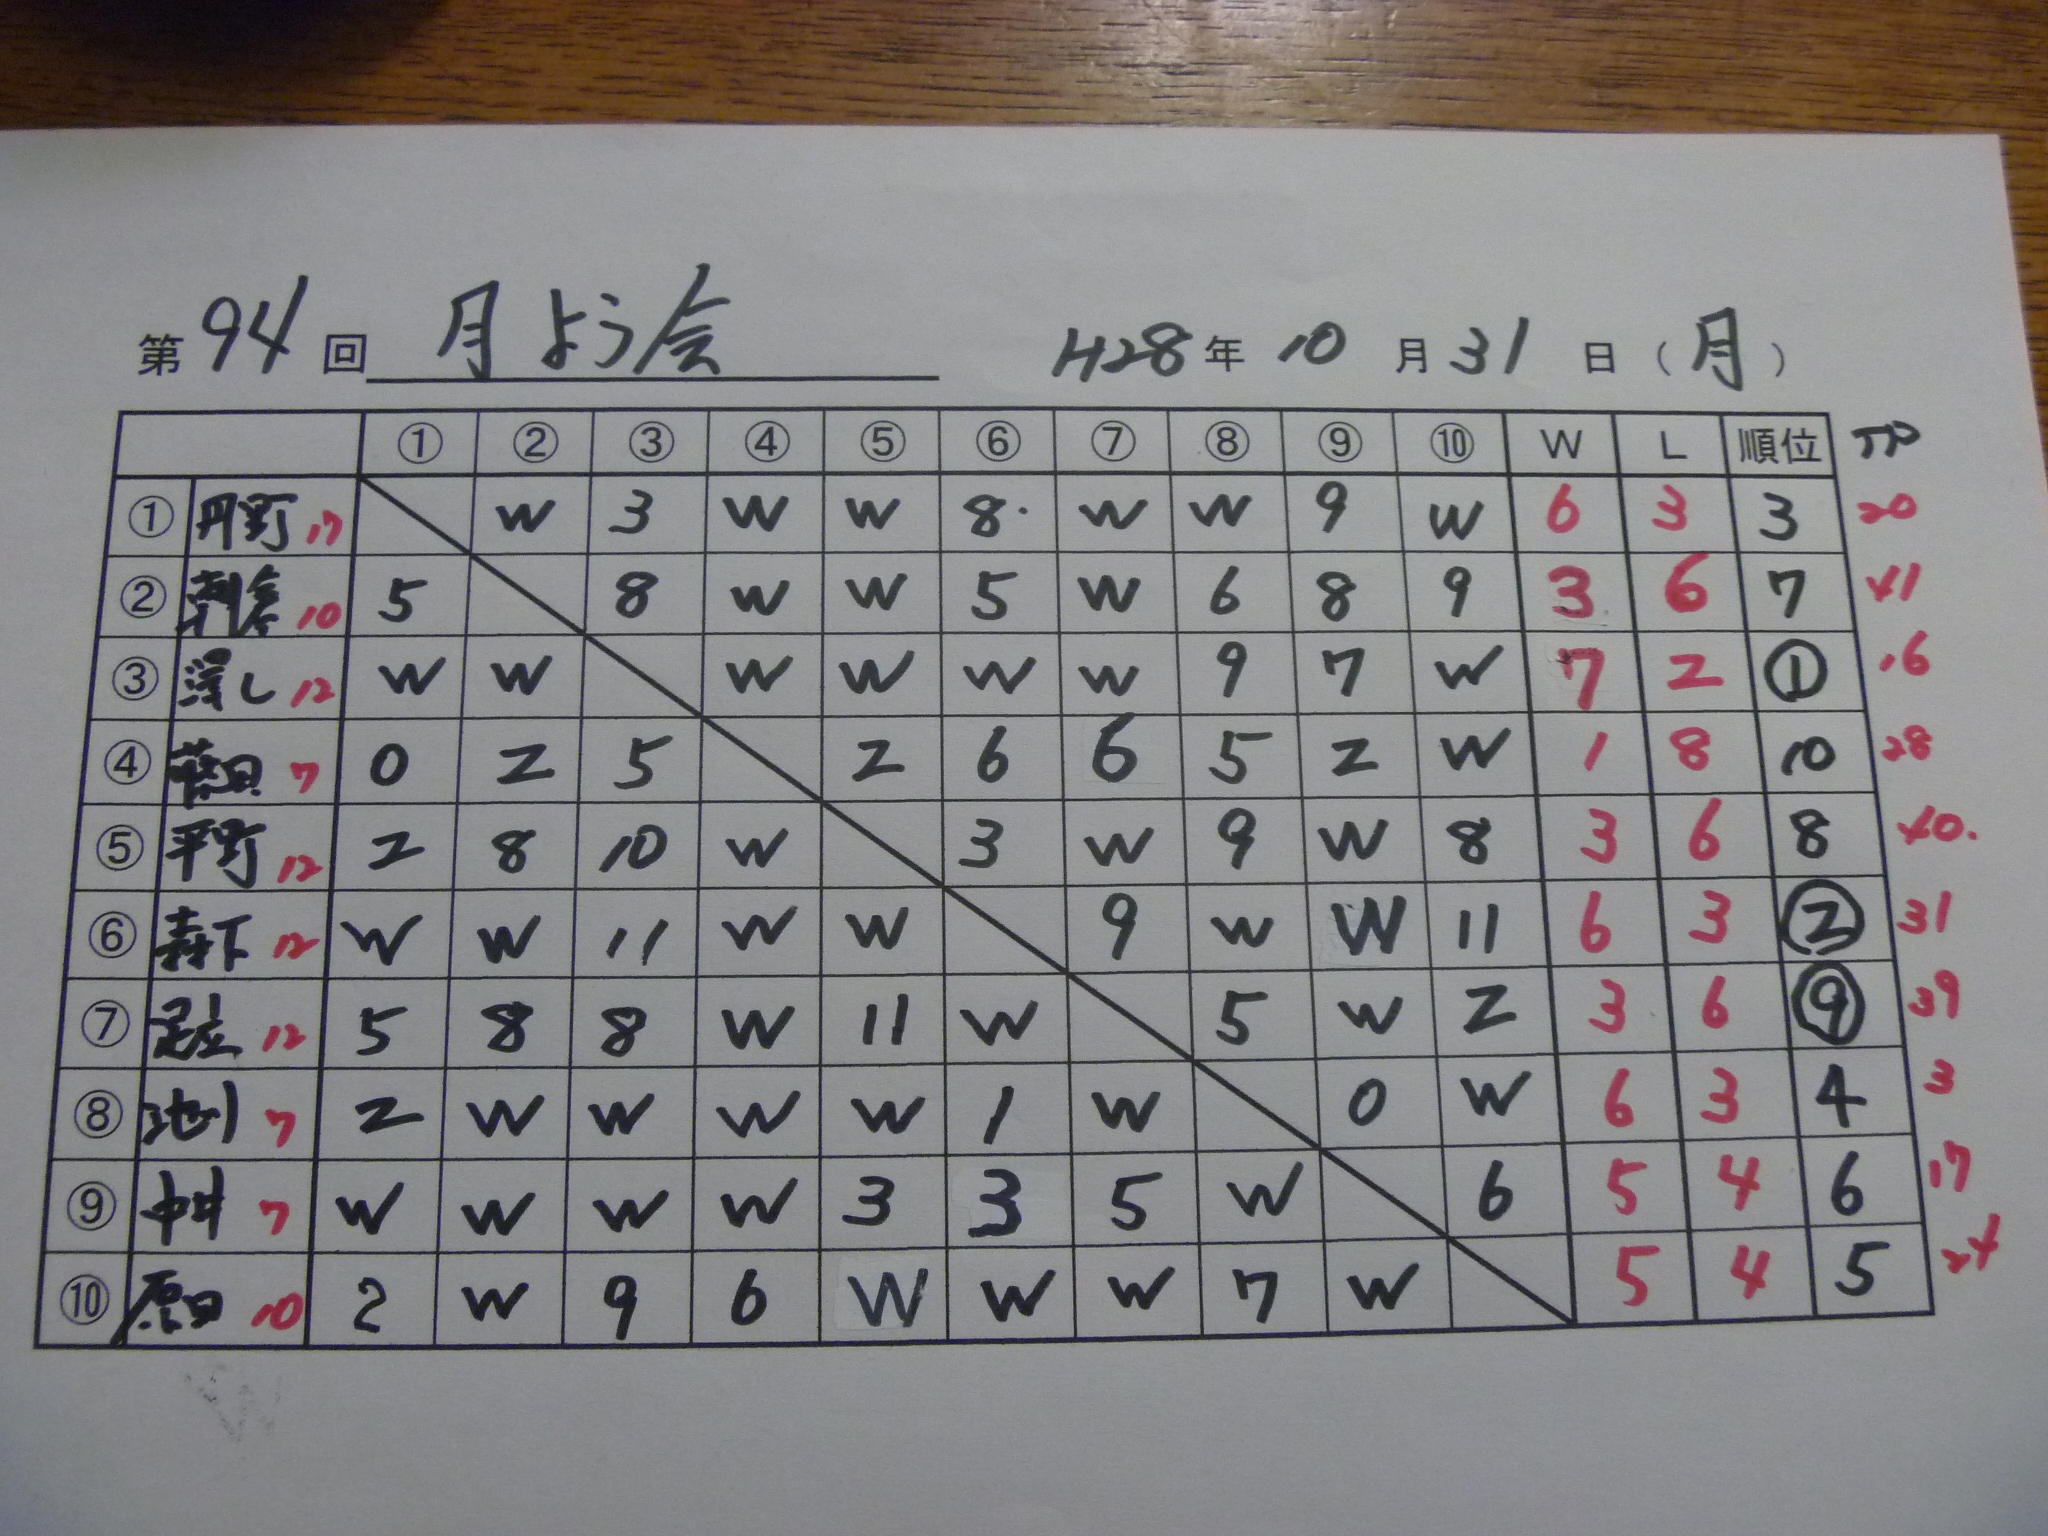 第94回 月よう会 H28年10月31日（月）
① ② ③ ④ ⑤ ⑥ ⑦ ⑧ ⑨ ⑩ W L 順位
① 丹野 17 W 3 W W 8 W W 9 W 6 3 3 20
② 朝倉 10 5 8 W W 5 W 6 8 9 3 6 7 41
③ 12 W W W W W W 9 7 W 7 2 ① 16
④ 7 0 2 5 2 6 6 5 2 W 1 8 10 28
⑤ 平野 12 2 8 10 W 3 W 9 W 8 3 6 8 40.
⑥ 森下 12 W W 11 W W 9 W W 11 6 3 ② 31
⑦ 足立 12 5 8 8 W 11 W 5 W 2 3 6 ⑨ 39
⑧ 池川 7 2 W W W W 1 W 0 W 6 3 4 3
⑨ 中井 7 W W W W 3 3 5 W 6 5 4 6 17
⑩ 原田 10 2 W 9 6 W W W 7 W 5 4 5 24